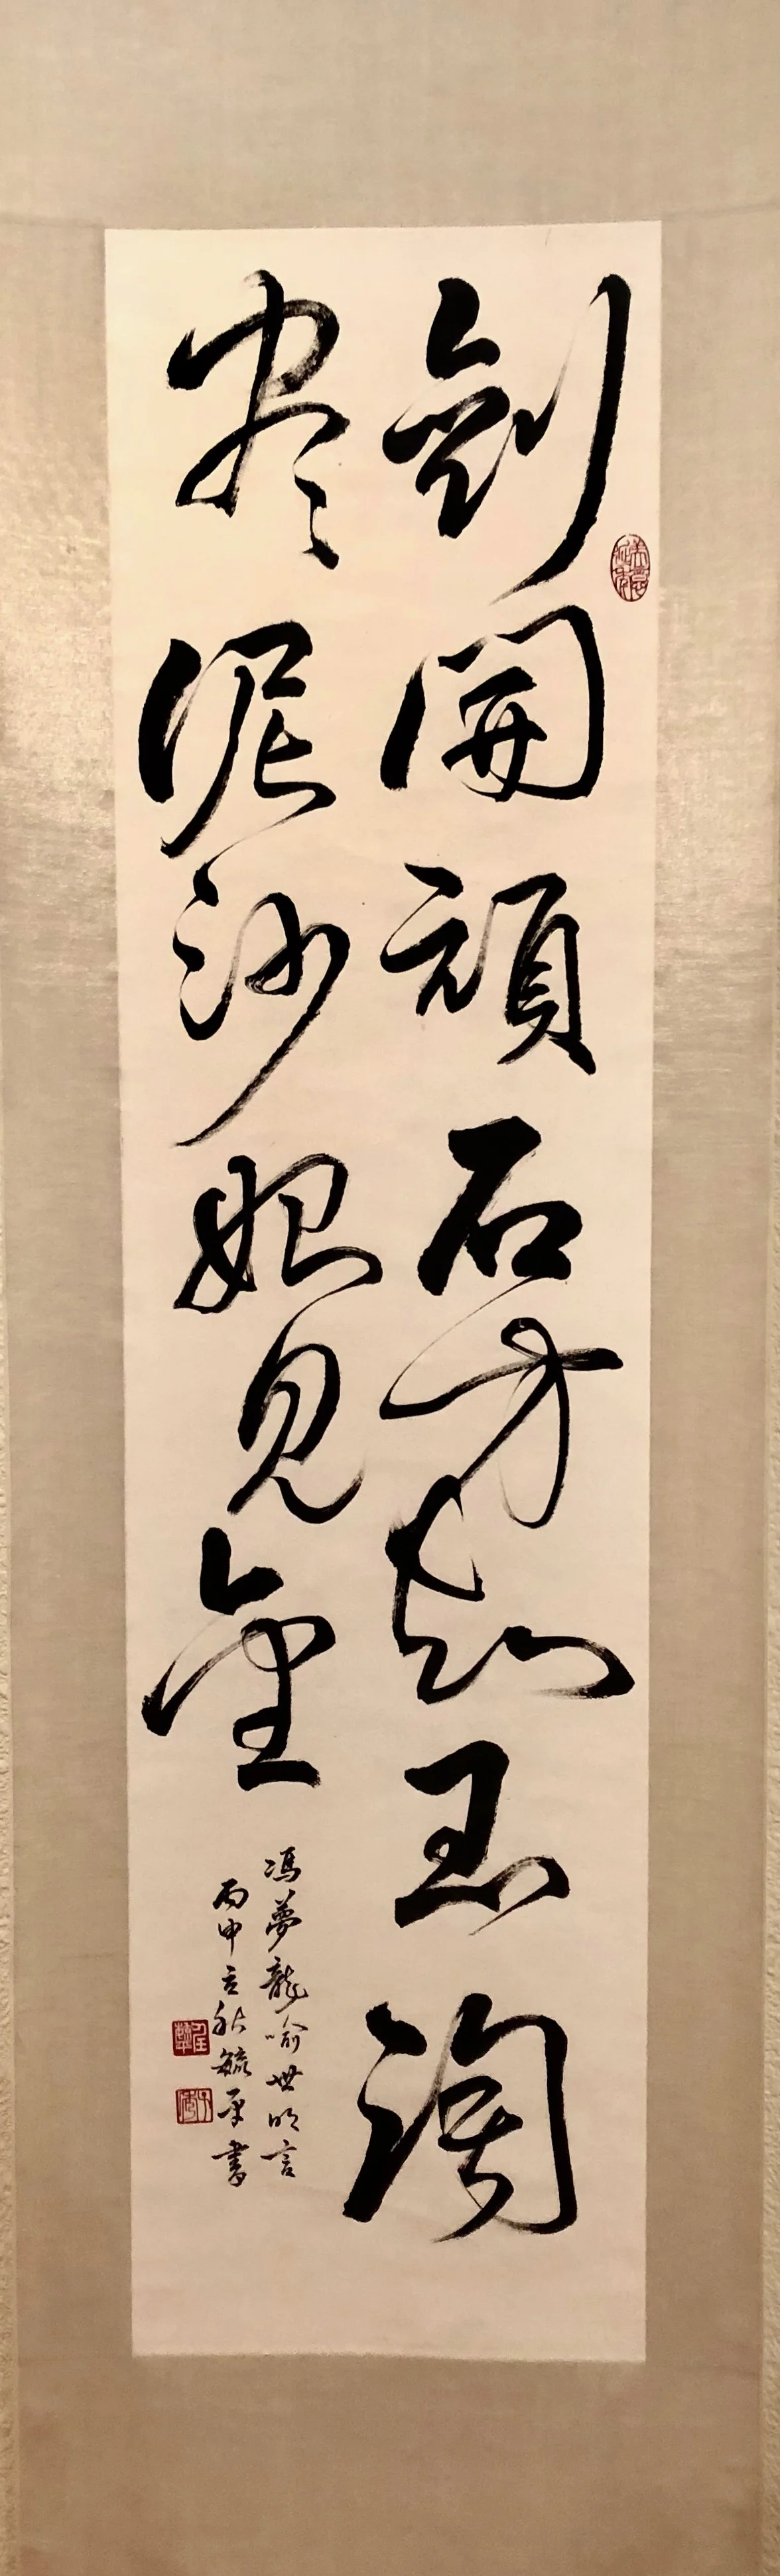 剖開頑石方知玉淘
盡泥沙始見金
馮夢龍喻世明言
丙申立秋毓平書